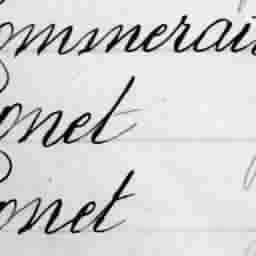 ommerai
onet
onet